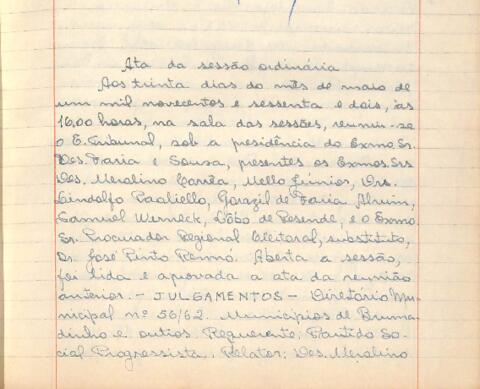 Ata da sessão ordinária
Aos trinta dias do mês de maio de
um mil novecentos e sessenta e dois, às
16,00 horas, na sala das sessões, reuniu-se
o E. Tribunal, sob a presidência do Exmo. Sr.
Des. Faria e Sousa, presentes os Exmos. Srs.
Des. Meralino Corrêa, Mello Júnior, Drs.
Lindolfo Paoliello, Gorazil de Faria Alvim,
Samuel Werneck, Lôbo de Resende, e o Exmo.
Sr. Procurador Regional Eleitoral, substituto,
Dr. José Pinto Rennó. Aberta a sessão,
foi lida e aprovada a ata da reunião
anterior. - JULGAMENTOS - Diretório Mu-
nicipal nº 56/62. Municípios de Bruma-
dinho e outros. Requerente: Partido So-
cial Progressista. Relator: Des. Meralino